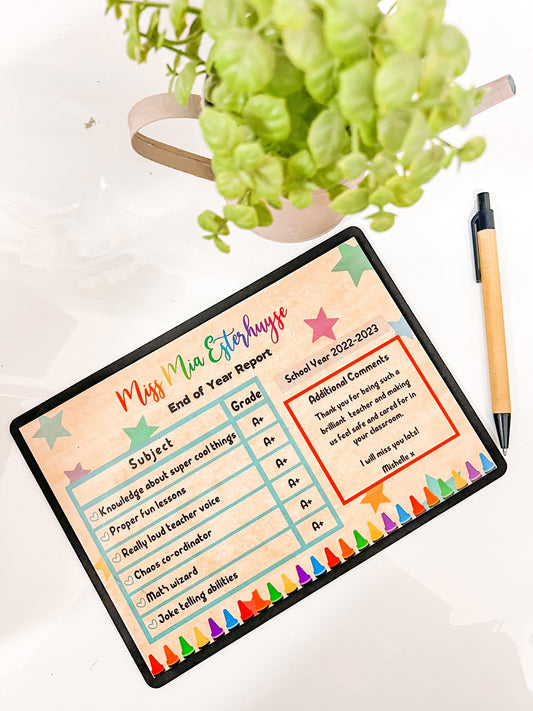 Miss Mia Esterhuyse
End of Year Report
School Year 2022-2023
Subject Grade
Knowledge about super cool things A+
Proper fun lessons A+
Really loud teacher voice A+
Chaos co-ordinator A+
Mat's wizard A+
Joke telling abilities A+
Additional Comments
Thank you for being such a
brilliant teacher and making
us feel safe and cared for in
your classroom.
I will miss you lots!
Mishelle x